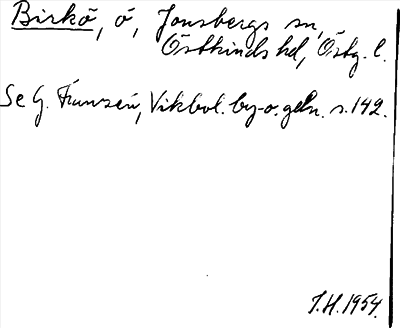 Birkö, ö, Jonsbergs sn,
Östkinds hd, Östg. l.
Se G. Franzén, Vikbol. by- o. gdn. s. 142.
J.H. 1954.